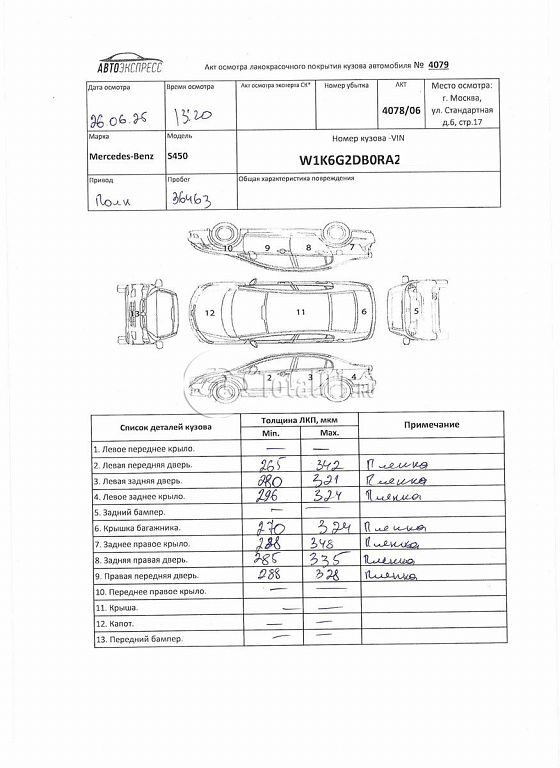 АВТОЭКСПРЕСС
Акт осмотра лакокрасочного покрытия кузова автомобиля № 4079
Дата осмотра Время осмотра Акт осмотра эксперта СК* Номер убытка АКТ Место осмотра:
26.06.25 13:20 4078/06 г. Москва,
ул. Стандартная
д.6, стр.17
Марка Модель Номер кузова -VIN
Mercedes-Benz S450 W1K6G2DB0RA2
Привод Пробег Общая характеристика повреждения
Полн 36463
10 9 8 7
13 12 11 6 5
3 2 3 4
Список деталей кузова Толщина ЛКП, мкм Примечание
Min. Max.
1. Левое переднее крыло. — —
2. Левая передняя дверь. 265 342 Пленка
3. Левая задняя дверь. 280 321 Пленка
4. Левое заднее крыло. 296 324 Пленка
5. Задний бампер. — —
6. Крышка багажника. 270 324 Пленка
7. Заднее правое крыло. 288 348 Пленка
8. Задняя правая дверь. 285 335 Пленка
9. Правая передняя дверь. 288 328 Пленка
10. Переднее правое крыло. — —
11. Крыша. — —
12. Капот. — —
13. Передний бампер. — —